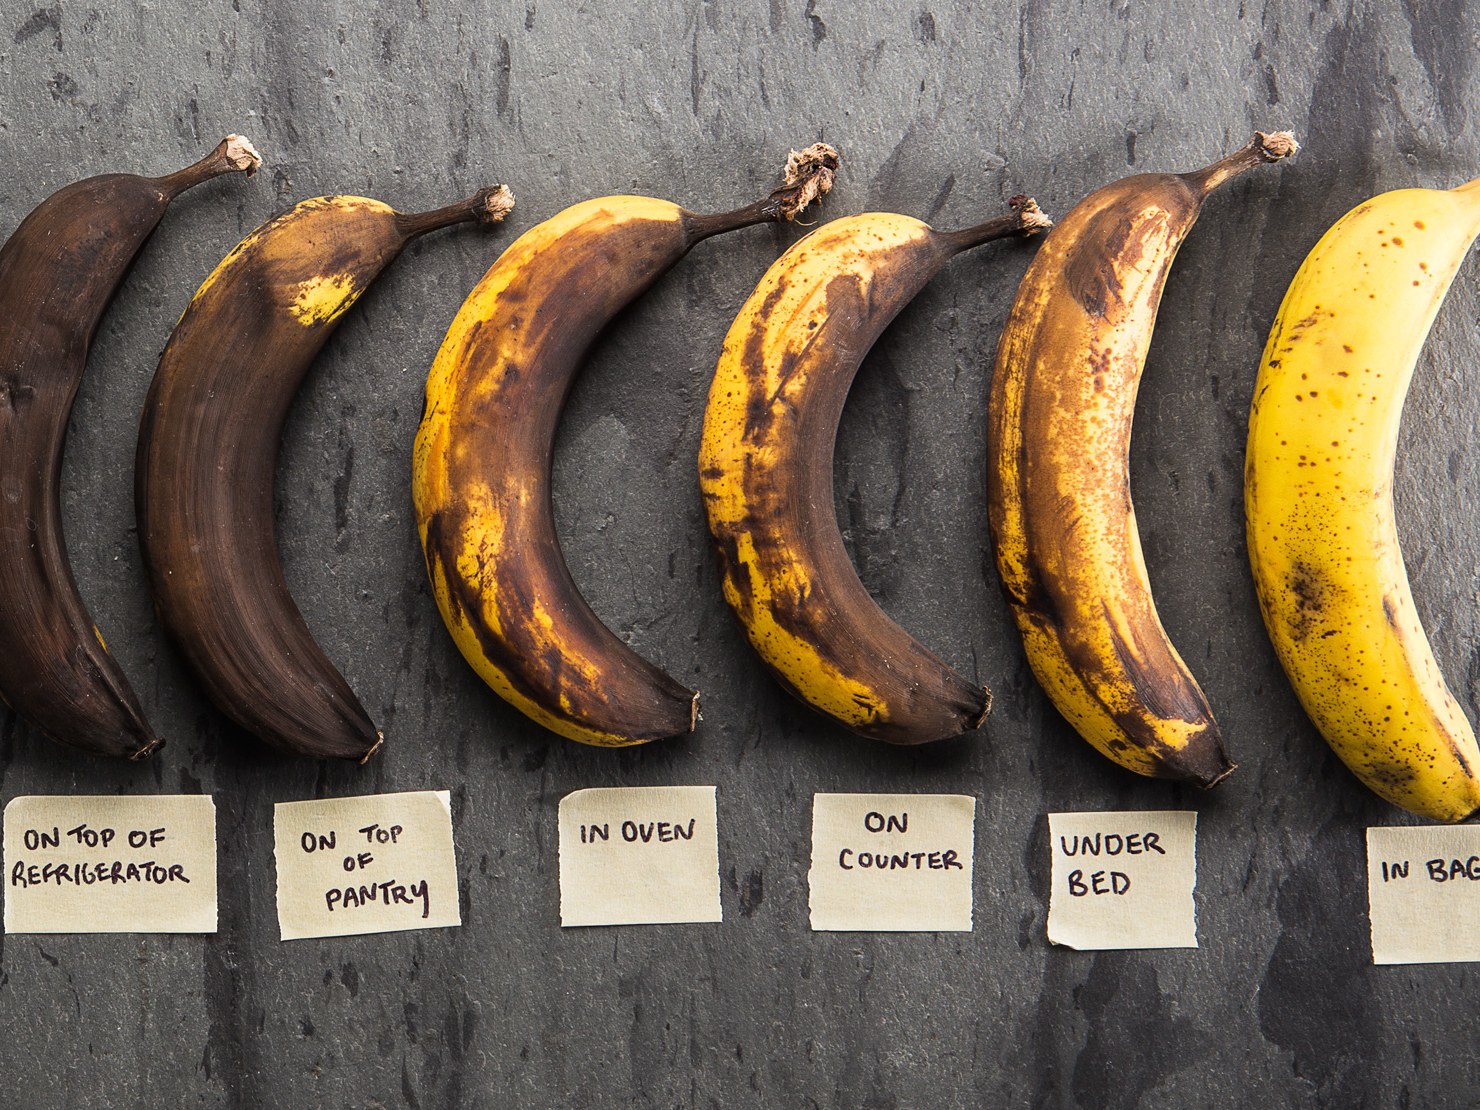 ON TOP OF
REFRIGERATOR
ON TOP
OF
PANTRY
IN OVEN
ON
COUNTER
UNDER
BED
IN BAG